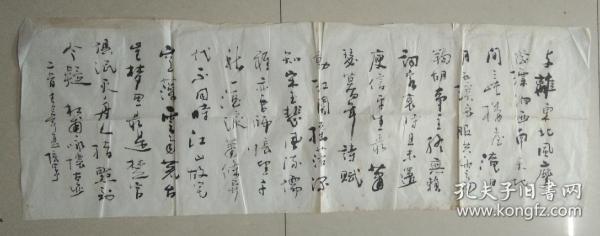 支離東北風塵
際漂泊西南天地
間三峽樓臺淹日
月五溪衣服共雲山
羯胡事主終無賴
詞客哀時且未還
庾信平生最蕭
瑟暮年詩賦
動江關搖落深
知宋玉悲風流儒
雅亦吾師悵望千
秋一灑淚蕭條異
代不同時江山故宅
空文藻雲雨荒台
豈夢思最是楚宮
俱泯滅舟人指點到
今疑 杜甫詠懷古迹
二首
孔夫子旧书网
www.kongfz.com